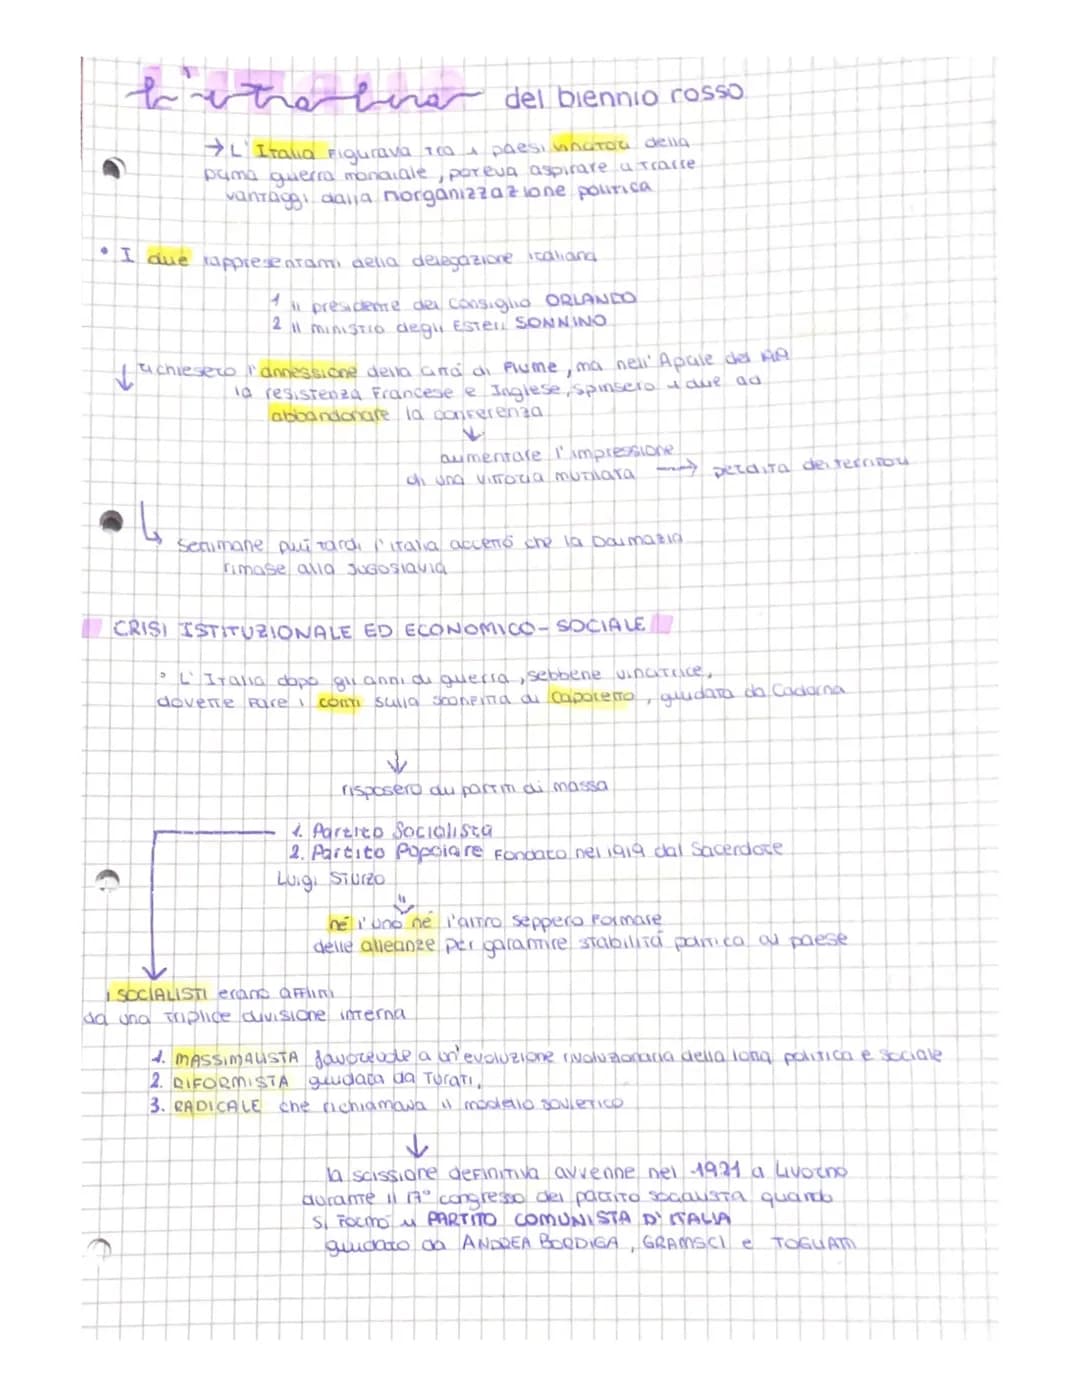 L'italia del biennio rosso
→ L'Italia Figurava tra i paesi vincitori della
prima guerra mondiale, poteva aspirare a trarre
vantaggi dalla riorganizzazione politica
• I due rappresentanti della delegazione italiana
1 il presidente del Consiglio ORLANDO
2 il ministro degli Esteri SONNINO
↓ richiesero l'annessione della città di Fiume, ma nell'Aprile del
la resistenza Francese e Inglese, spinsero i due ad
abbandonare la conferenza
↓
aumentare l'impressione
di una vittoria mutilata → perdita dei territori
↳ settimane più tardi l'italia accettò che la Dalmazia
rimase alla Jugoslavia
CRISI ISTITUZIONALE ED ECONOMICO-SOCIALE
° L'Italia dopo gli anni di guerra, sebbene vincitrice,
dovette fare i conti sulla sconfitta di Caporetto, guidata da Cadorna
↓
risposero du partiti di massa
1. Partito Socialista
2. Partito Popolare Fondato nel 1919 dal Sacerdote
Luigi Sturzo
⇓
né l'uno né l'altro seppero formare
delle alleanze per garantire stabilità politica al paese
i SOCIALISTI erano affini
da una triplice divisione interna
1. MASSIMALISTA favorevole a un'evoluzione rivoluzionaria della lotta politica e sociale
2. RIFORMISTA guidata da Turati,
3. RADICALE che richiamava il modello sovietico
↓
la scissione definitiva avvenne nel 1921 a Livorno
durante il 17° congresso del partito socialista quando
si formò il PARTITO COMUNISTA D'ITALIA
guidato da ANDREA BORDIGA, GRAMSCI e TOGLIATTI